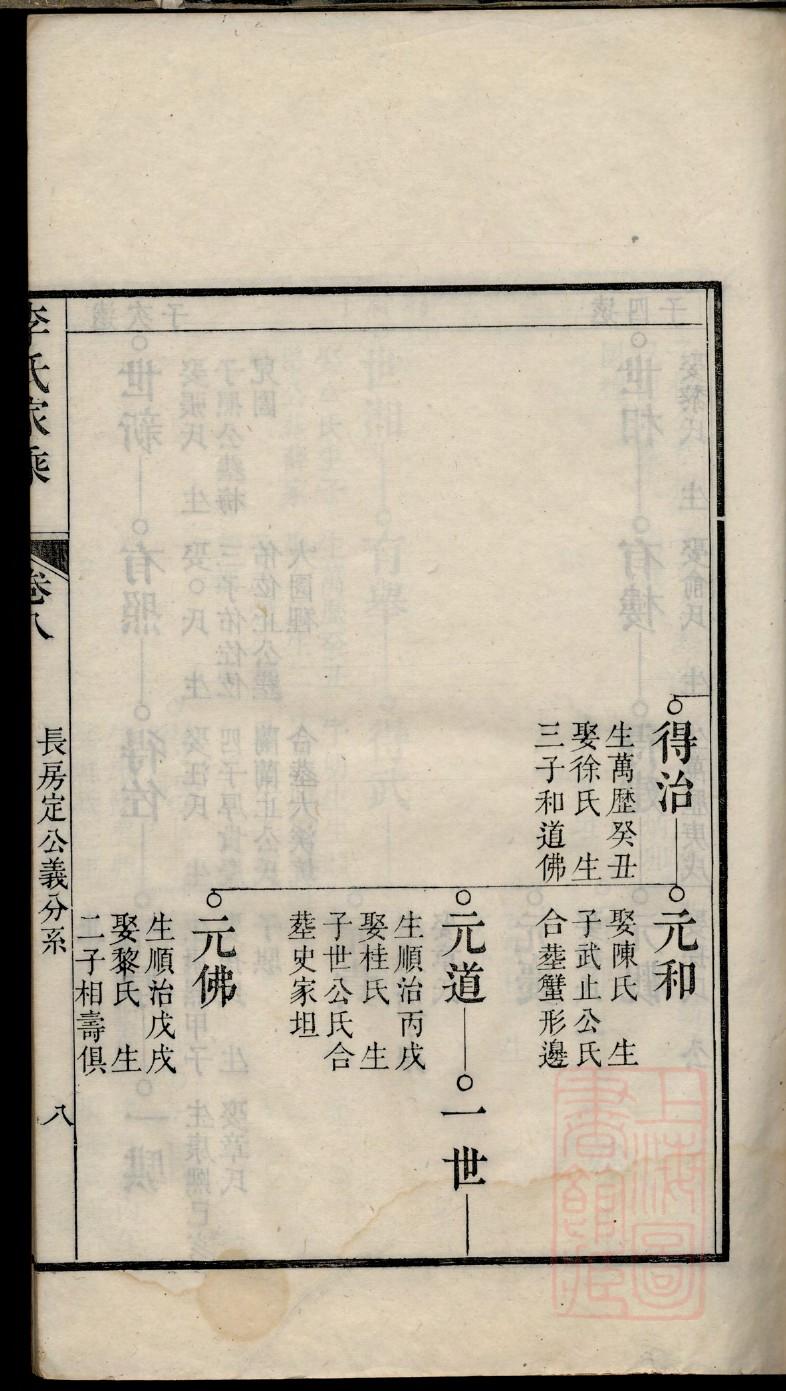 得治
生萬歷癸丑
娶徐氏 生
三子和道佛
元和
娶陳氏 生
子武止公氏
合塟蟹形邊
元道
生順治丙戌
娶桂氏 生
子世公氏合
塟史家坦
一世
元佛
生順治戊戌
娶黎氏 生
二子相壽俱
李氏家乘
卷八
長房定公義分系
八
上海圖書館藏